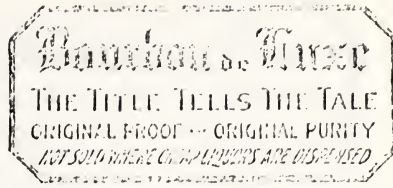 Bourbon de Luxe
THE TITLE TELLS THE TALE
ORIGINAL PROOF -- ORIGINAL PURITY
NOT SOLD WHERE CHEAP LIQUORS ARE DISPENSED